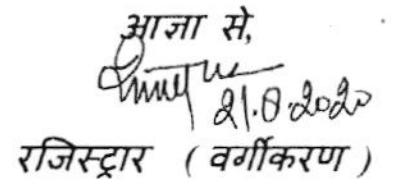 आज्ञा से,
21.8.2020
रजिस्ट्रार ( वर्गीकरण )